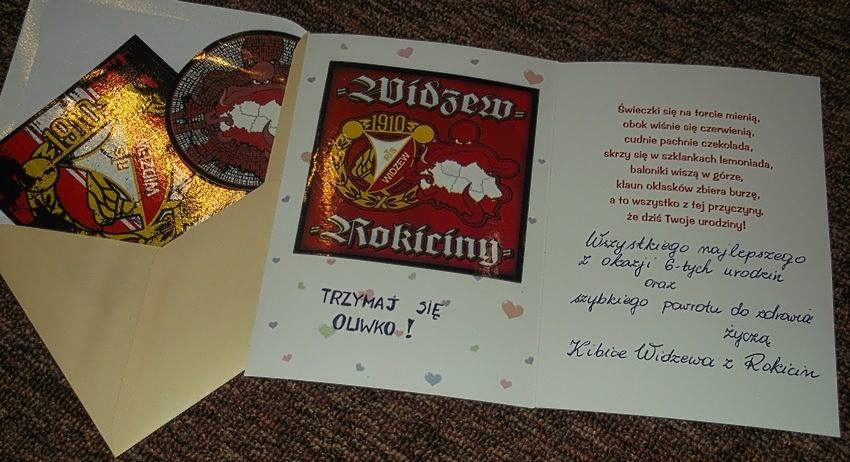 1910
RTS
WIDZEW
-Widzew-
1910
RTS
WIDZEW
-Rokiciny-
TRZYMAJ SIĘ
OLIWKO!
Świeczki się na torcie mienią,
obok wiśnie się czerwienią,
cudnie pachnie czekolada,
skrzy się w szklankach lemoniada,
baloniki wiszą w górze,
klaun oklasków zbiera burzę,
a to wszystko z tej przyczyny,
że dziś Twoje urodziny!
Wszystkiego najlepszego
z okazji 6-tych urodzin
oraz
szybkiego powrotu do zdrowia
życzą
Kibice Widzewa z Rokicin